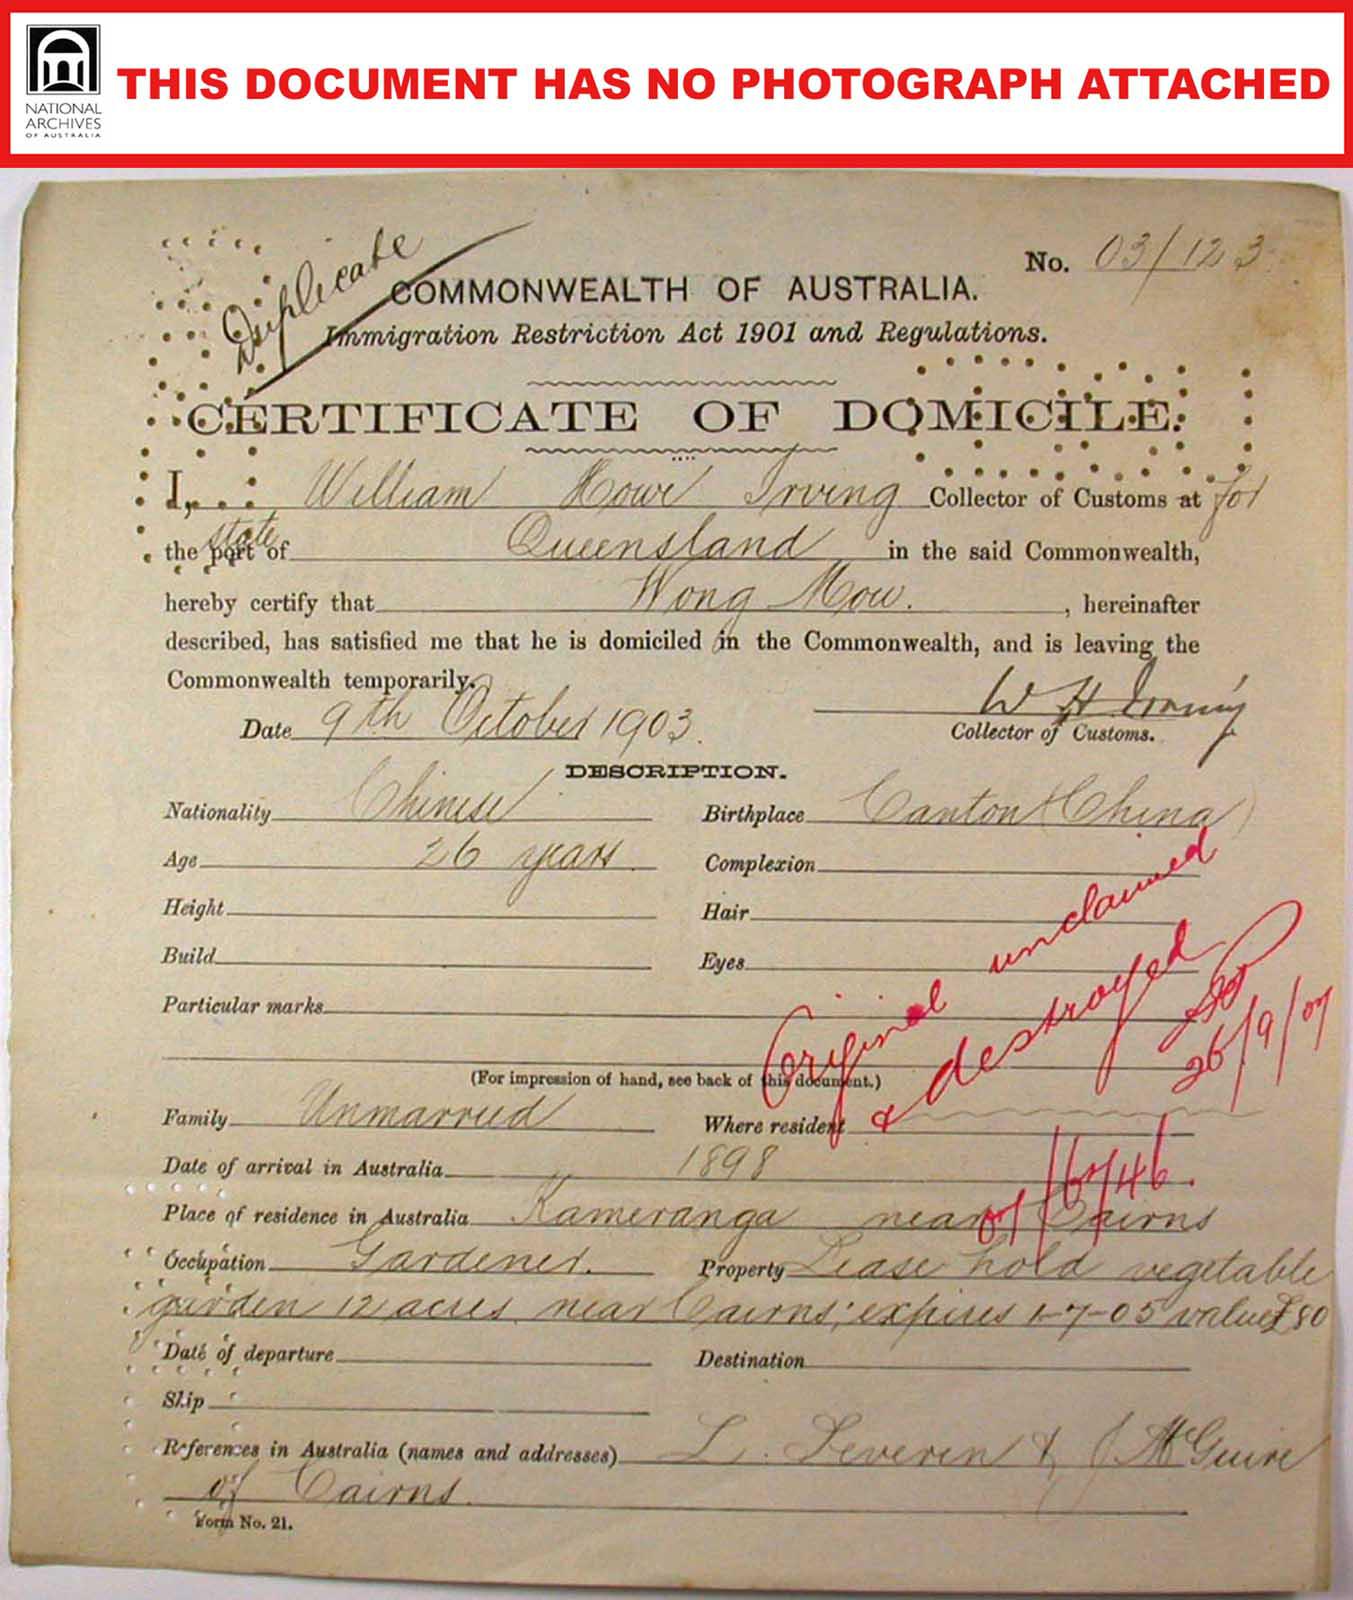 NATIONAL
ARCHIVES
OF AUSTRALIA
THIS DOCUMENT HAS NO PHOTOGRAPH ATTACHED
Duplicate
No. 03/123
COMMONWEALTH OF AUSTRALIA.
Immigration Restriction Act 1901 and Regulations.
CERTIFICATE OF DOMICILE.
I, William Howe Irving Collector of Customs at for
state
the port of Queensland in the said Commonwealth,
hereby certify that Wong Mow. , hereinafter
described, has satisfied me that he is domiciled in the Commonwealth, and is leaving the
Commonwealth temporarily.
W H Irving
Date 9th October 1903.
Collector of Customs.
DESCRIPTION.
Nationality Chinese Birthplace Canton (China)
Age 26 years. Complexion
Height Hair
Build Eyes
Particular marks
Original unclaimed
& destroyed
26/9/07
(For impression of hand, see back of this document.)
Family Unmarried Where resident
Date of arrival in Australia 1898
Place of residence in Australia Kameranga near Cairns
Occupation Gardener. Property Lease hold vegetable
garden 12 acres near Cairns; expires 1-7-05 value £80
Date of departure Destination
Ship
References in Australia (names and addresses) L. Severin & J McGuire
of Cairns.
Form No. 21.